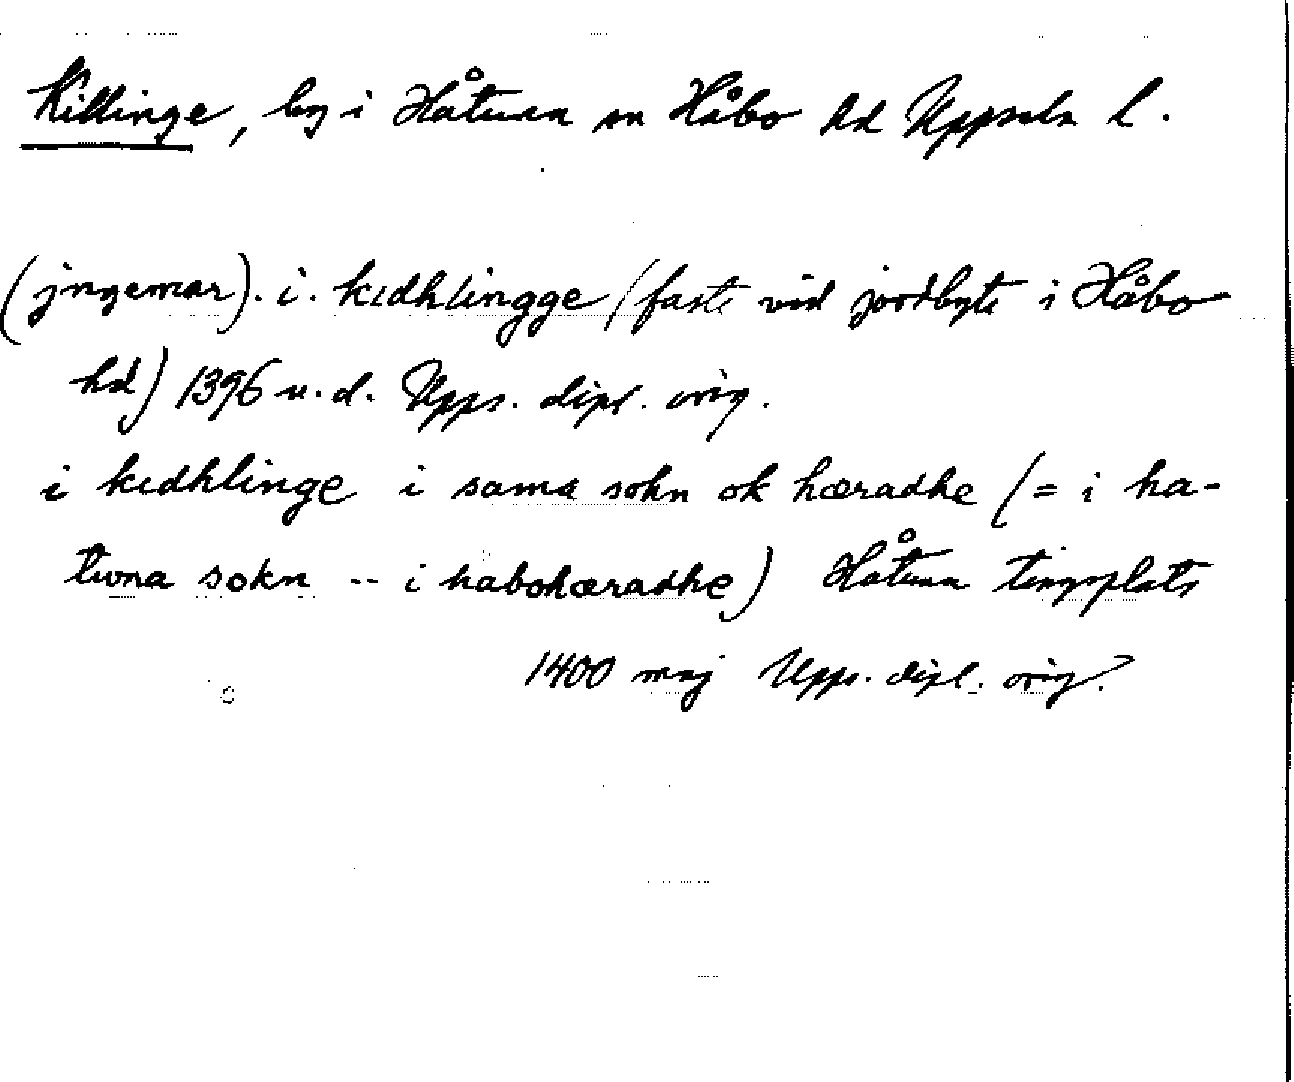 Killinge, by i Håtuna sn Håbo hd Uppsala l.
(jngemar). i. kidhlingge (faste vid jordbyte i Håbo
hd) 1396 u.d. Upps. dipl. orig.
i kidhlinge i sama sokn ok hæradhe (= i ha-
twna sokn -- i habohæradhe) Håtuna tingsplats
1400 maj Upps. dipl. orig.